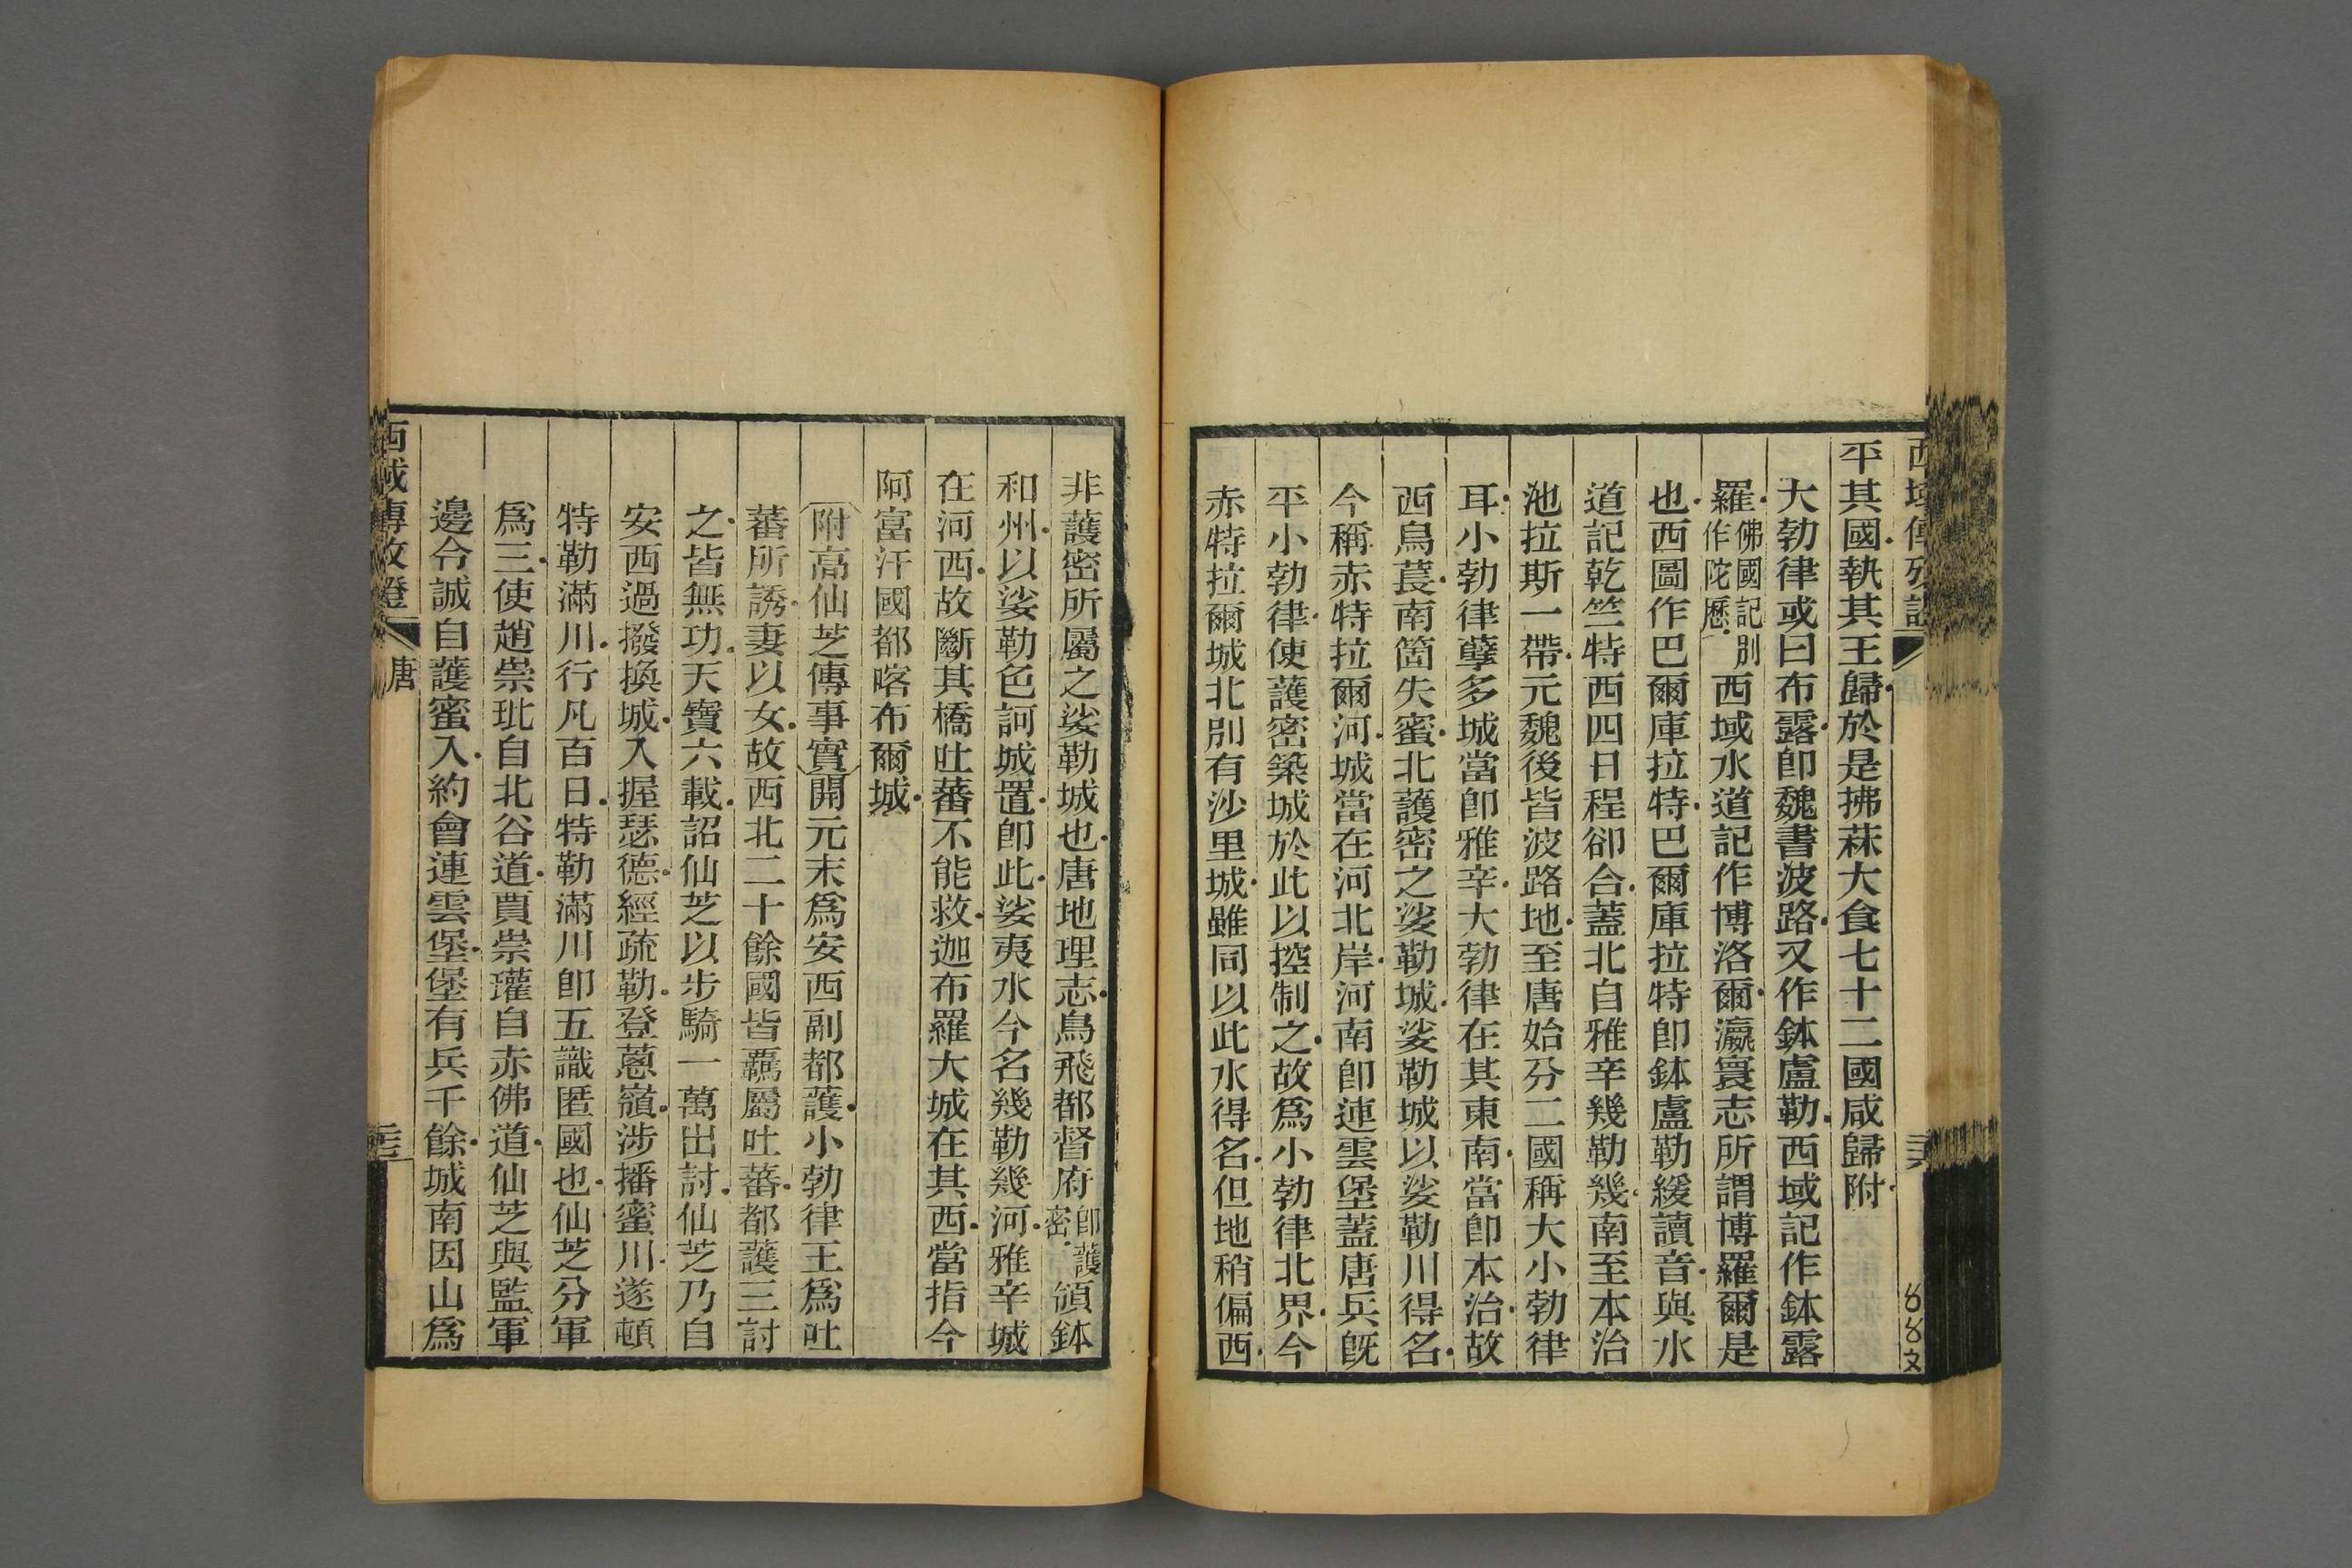 平其國執其王歸於是拂菻大食七十二國咸歸附
大勃律或曰布露卽魏書波路又作鉢盧勒西域記作鉢露
羅佛國記別作陀歷西域水道記作博洛爾瀛寰志所謂博羅爾是
也西圖作巴爾庫拉特巴爾庫拉特卽鉢盧勒緩讀音與水
道記乾竺特西四日程卻合蓋北自雅辛幾勒幾南至本治
池拉斯一帶元魏後皆波路地至唐始分二國稱大小勃律
耳小勃律孽多城當卽雅辛大勃律在其東南當卽本治故
西烏萇南箇失蜜北護密之娑勒城娑勒城以娑勒川得名
今稱赤特拉爾河城當在河北岸河南卽連雲堡蓋唐兵旣
平小勃律使護密築城於此以控制之故爲小勃律北界今
赤特拉爾城北別有沙里城雖同以此水得名但地稍偏西
非護密所屬之娑勒城也唐地理志鳥飛都督府卽護密領鉢
和州以娑勒色訶城置卽此娑夷水今名幾勒幾河雅辛城
在河西故斷其橋吐蕃不能救迦布羅大城在其西當指今
阿富汗國都喀布爾城
附高仙芝傳事實開元末爲安西副都護小勃律王爲吐
蕃所誘妻以女故西北二十餘國皆羈屬吐蕃都護三討
之皆無功天寶六載詔仙芝以步騎一萬出討仙芝乃自
安西過撥換城入握瑟德經疏勒登蔥嶺涉播蜜川遂頓
特勒滿川行凡百日特勒滿川卽五識匿國也仙芝分軍
爲三使趙崇玼自北谷道賈崇瓘自赤佛道仙芝與監軍
邊令誠自護蜜入約會連雲堡堡有兵千餘城南因山爲
西域傳攷證
唐